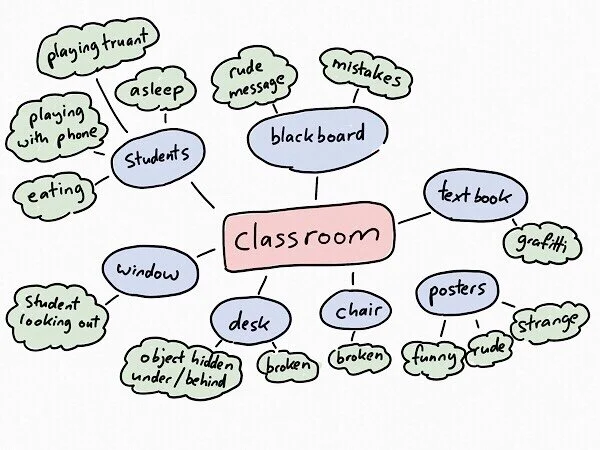 playing truant
asleep
rude
message
mistakes
playing
with phone
Students
blackboard
eating
textbook
grafitti
classroom
window
Student
looking out
desk
chair
posters
object hidden
under/behind
broken
broken
funny
rude
strange